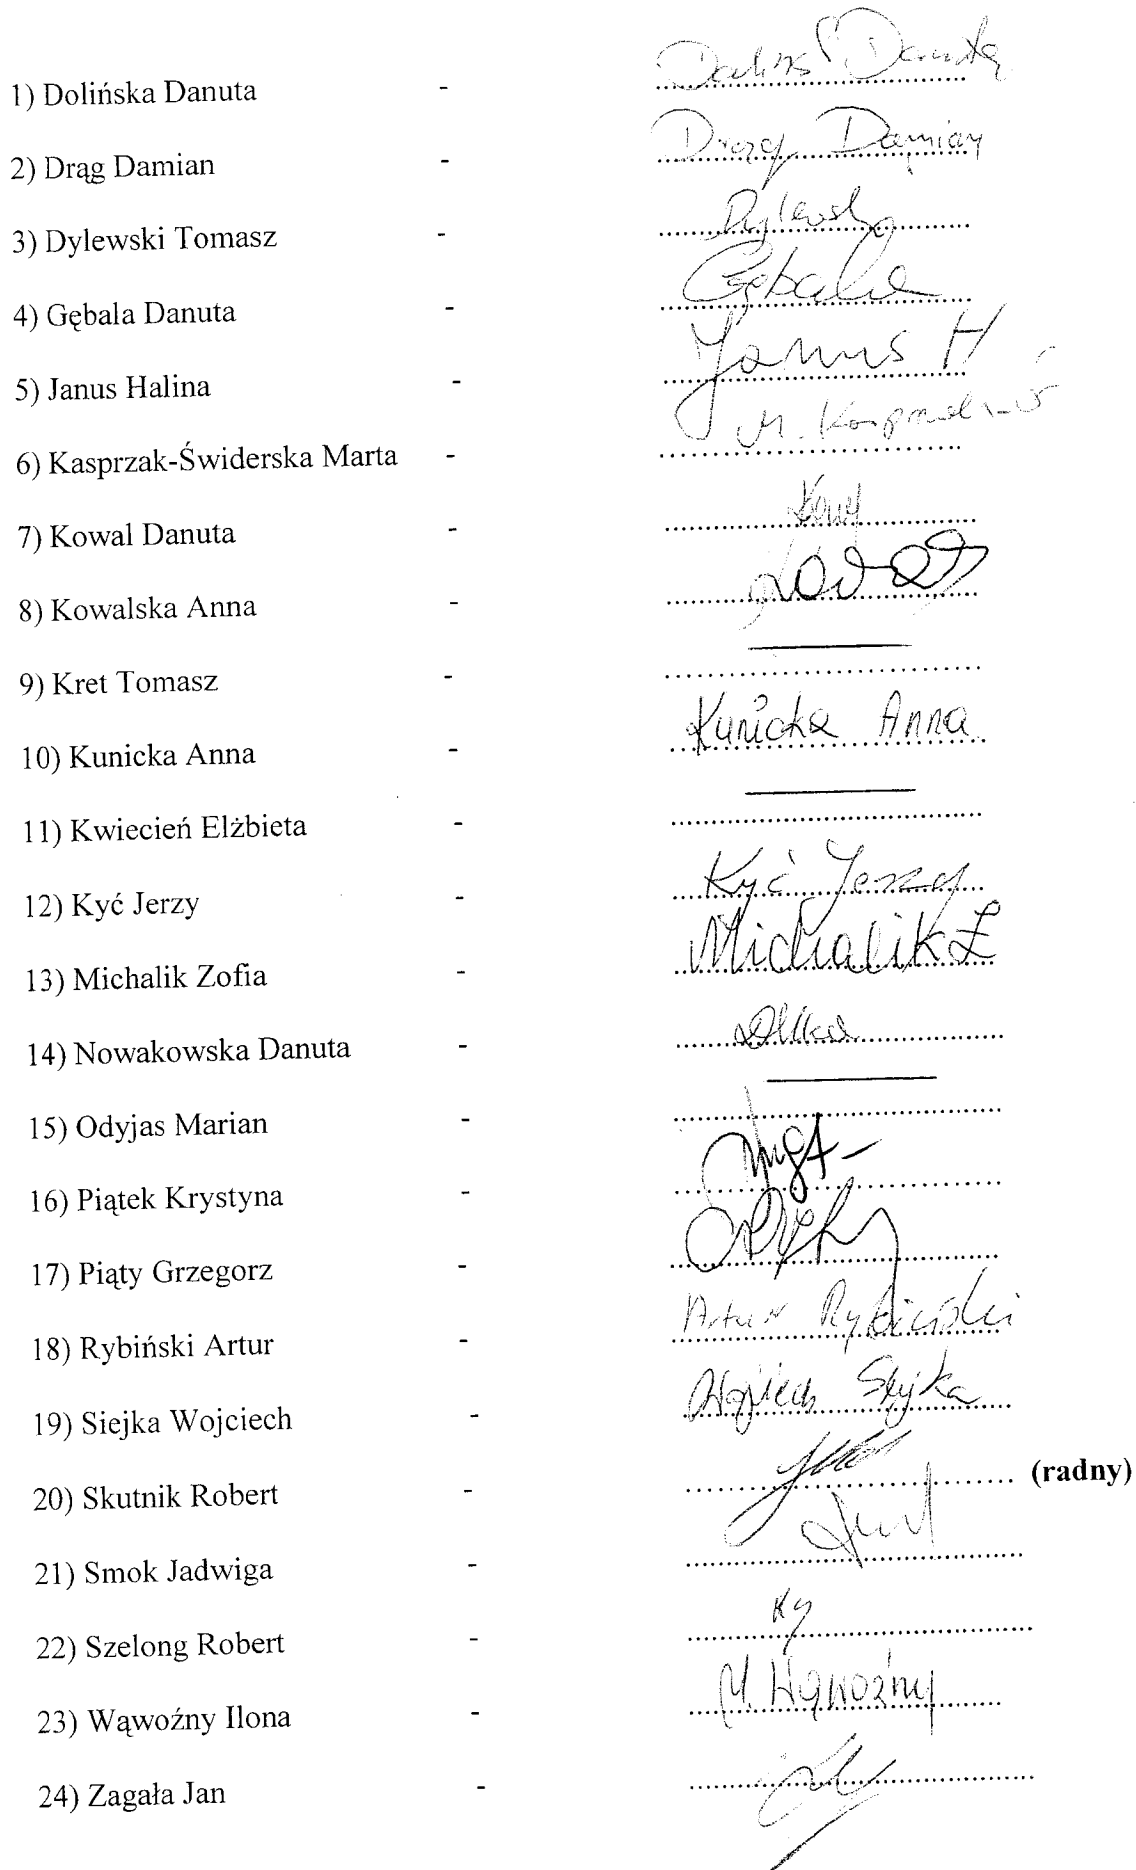 1) Dolińska Danuta - Danuta
2) Drąg Damian - Drąg Damian
3) Dylewski Tomasz - Dylewski
4) Gębala Danuta - Gębala
5) Janus Halina - Janus H
6) Kasprzak-Świderska Marta - M. Kasprzak-Ś
7) Kowal Danuta -
8) Kowalska Anna -
9) Kret Tomasz -
10) Kunicka Anna - Kunicka Anna
11) Kwiecień Elżbieta -
12) Kyć Jerzy - Kyć Jerzy
13) Michalik Zofia - Michalik Z
14) Nowakowska Danuta -
15) Odyjas Marian -
16) Piątek Krystyna -
17) Piąty Grzegorz -
18) Rybiński Artur - Artur Rybiński
19) Siejka Wojciech - Wojciech Siejka
20) Skutnik Robert - (radny)
21) Smok Jadwiga -
22) Szelong Robert -
23) Wąwoźny Ilona - Wąwoźny
24) Zagała Jan -